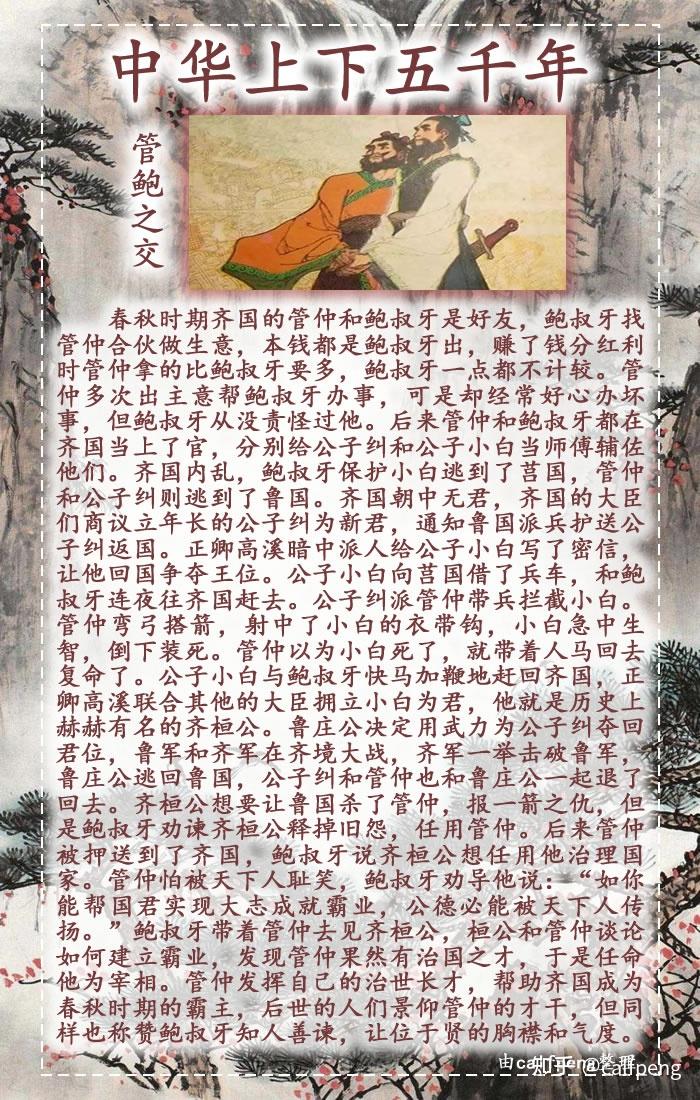 中华上下五千年
管鲍之交
春秋时期齐国的管仲和鲍叔牙是好友，鲍叔牙找
管仲合伙做生意，本钱都是鲍叔牙出，赚了钱分红利
时管仲拿的比鲍叔牙要多，鲍叔牙一点都不计较。管
仲多次出主意帮鲍叔牙办事，可是却经常好心办坏
事，但鲍叔牙从没责怪过他。后来管仲和鲍叔牙都在
齐国当上了官，分别给公子纠和公子小白当师傅辅佐
他们。齐国内乱，鲍叔牙保护小白逃到了莒国，管仲
和公子纠则逃到了鲁国。齐国朝中无君，齐国的大臣
们商议立年长的公子纠为新君，通知鲁国派兵护送公
子纠返国。正卿高溪暗中派人给公子小白写了密信，
让他回国争夺王位。公子小白向莒国借了兵车，和鲍
叔牙连夜往齐国赶去。公子纠派管仲带兵拦截小白。
管仲弯弓搭箭，射中了小白的衣带钩，小白急中生
智，倒下装死。管仲以为小白死了，就带着人马回去
复命了。公子小白与鲍叔牙快马加鞭地赶回齐国，正
卿高溪联合其他的大臣拥立小白为君，他就是历史上
赫赫有名的齐桓公。鲁庄公决定用武力为公子纠夺回
君位，鲁军和齐军在齐境大战，齐军一举击破鲁军，
鲁庄公逃回鲁国，公子纠和管仲也和鲁庄公一起退了
回去。齐桓公想要让鲁国杀了管仲，报一箭之仇，但
是鲍叔牙劝谏齐桓公释掉旧怨，任用管仲。后来管仲
被押送到了齐国，鲍叔牙说齐桓公想任用他治理国
家。管仲怕被天下人耻笑，鲍叔牙劝导他说：“如你
能帮国君实现大志成就霸业，公德必能被天下人传
扬。”鲍叔牙带着管仲去见齐桓公，桓公和管仲谈论
如何建立霸业，发现管仲果然有治国之才，于是任命
他为宰相。管仲发挥自己的治世长才，帮助齐国成为
春秋时期的霸主，后世的人们景仰管仲的才干，但同
样也称赞鲍叔牙知人善谏，让位于贤的胸襟和气度。
由calfpeng整理
知乎 @calfpeng